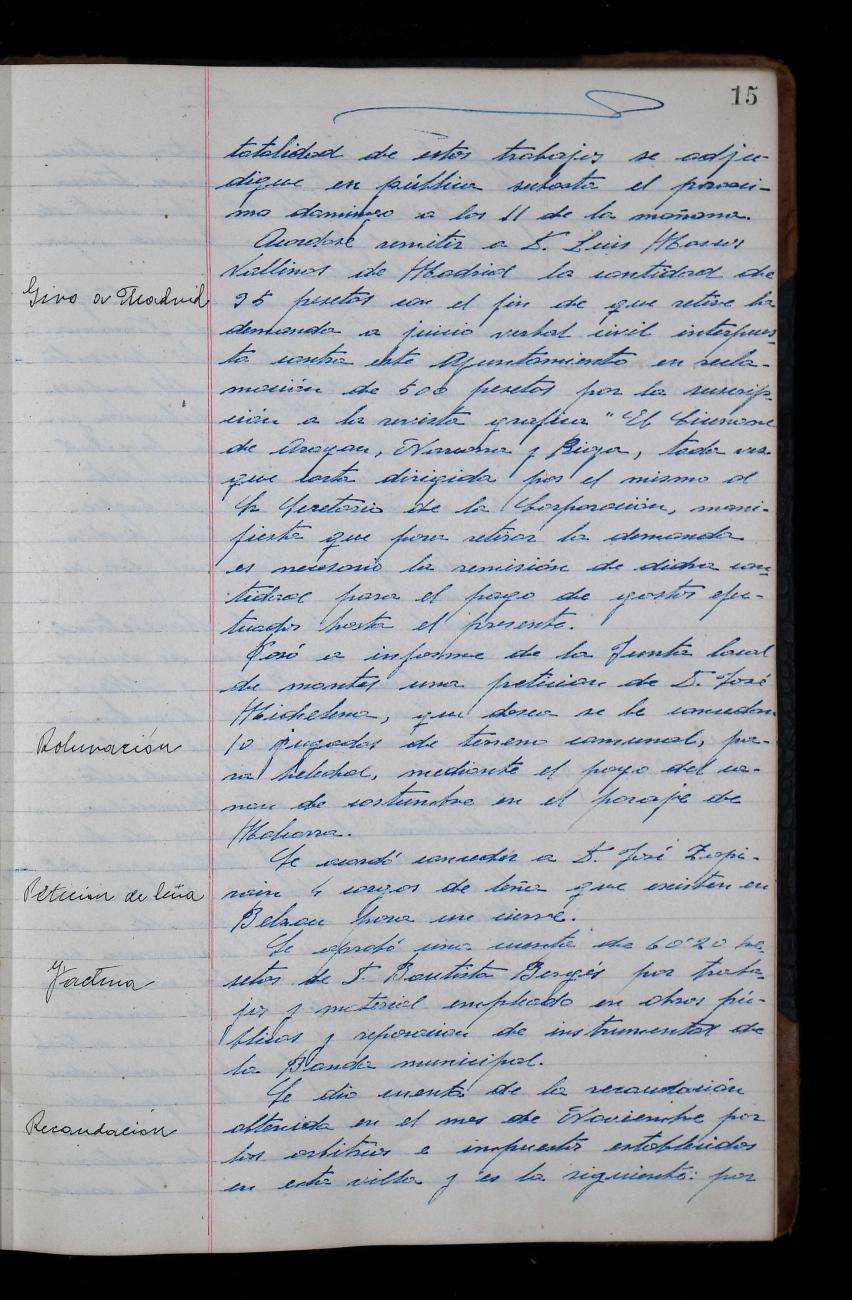 15
totalidad de estos trabajos se adju-
dique en pública subasta el próxi-
mo domingo a las 11 de la mañana.
Acordose remitir a D. Luis Massos
Giro a Madrid
Vallinos de Madrid la cantidad de
95 pesetas con el fin de que retire la
demanda a juicio verbal civil interpues-
ta contra este Ayuntamiento en recla-
mación de 500 pesetas por la suscrip-
ción a la revista grafica "El
de Aragon, Navarra y Rioja, toda vez
que carta dirigida por el mismo al
Sr Secretario de la Corporación, mani-
fiesta que para retirar la demanda
es necesario la remisión de dicha can-
tidad para el pago de gastos efec-
tuados hasta el presente.
Pasó a informe de la Junta local
de montes una peticion de D. José
Michelena, que desea se le concedan
Roturación
10 yugadas de terreno comunal, pa-
ra helechal, mediante el pago del ca-
non de costumbre en el paraje de
Se acordó conceder a D. José Zapi-
Petición de leña
rain 4 cargas de leña que existen en
para un cierre.
Se aprobó una cuenta de 60'20 pe-
Factura
setas de J. Bautista Bergés por traba-
jos y material empleado en obras pú-
blicas y reparacion de instrumental de
la Banda municipal.
Se dio cuenta de la recaudación
Recaudación
obtenida en el mes de Noviembre por
los arbitrios e impuestos establecidos
en esta villa y es la siguiente: por